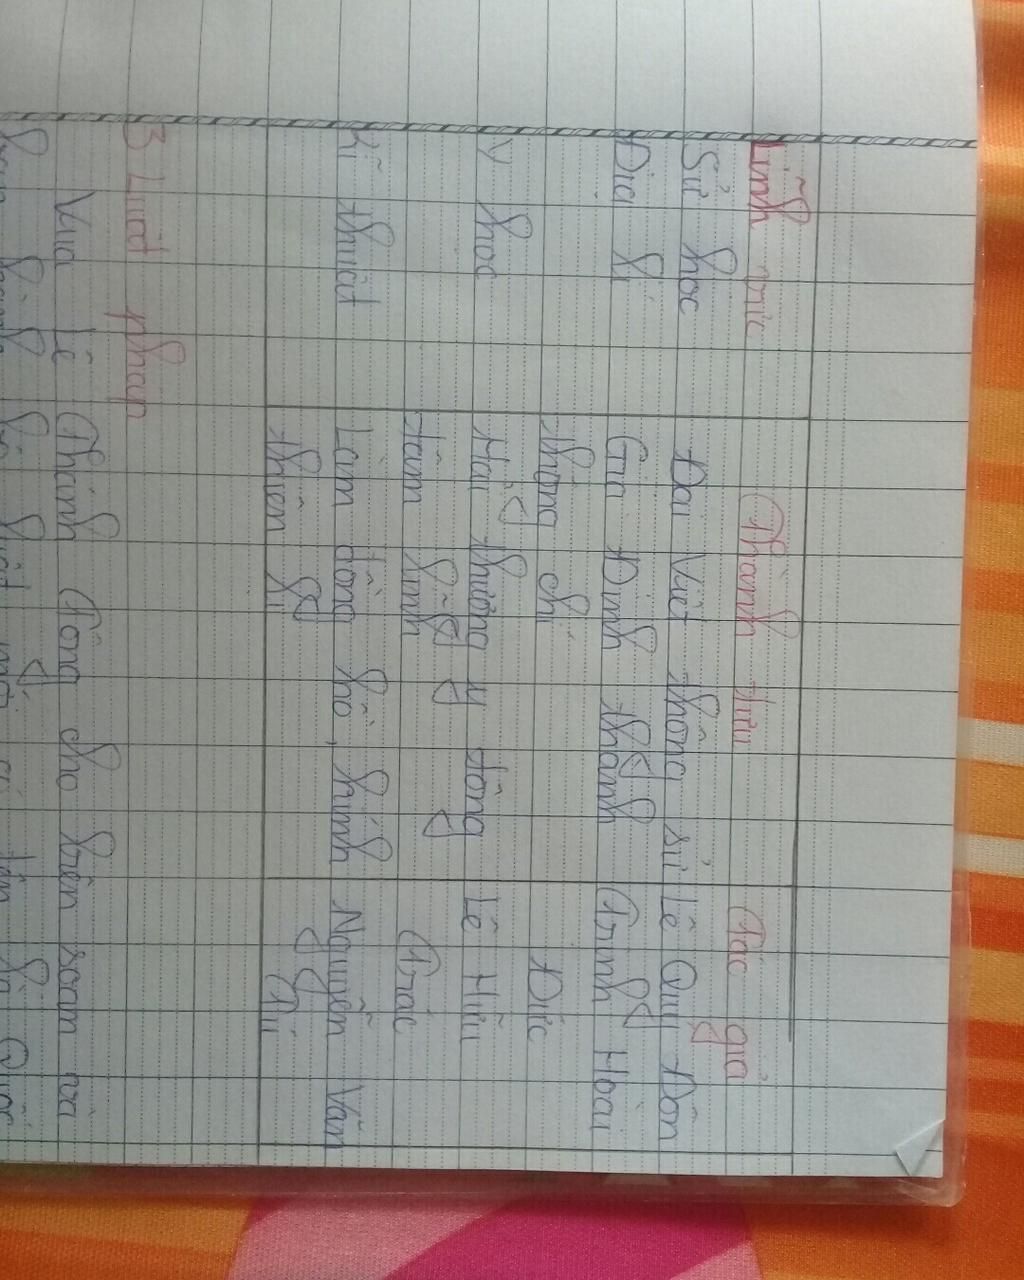 Lĩnh vực Thành tựu Tác giả
Sử học Đại Việt thông sử Lê Quý Đôn
Địa lí Gia Định thành Trịnh Hoài
thông chí Đức
Y học Hải thượng y tông Lê Hữu
tâm lĩnh Trác
Kĩ thuật Làm đồng hồ, kính Nguyễn Văn
thiên lí Tú
3 Luật pháp
Vua Lê Thánh Tông cho biên soạn và
bộ luật có tên là Quốc